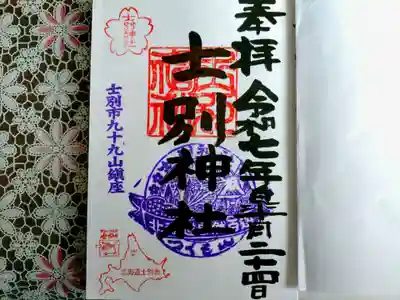 奉拝 令和七年 月二十四日
士別神社
士別市九十九山鎮座
つくも山
北海道士別市